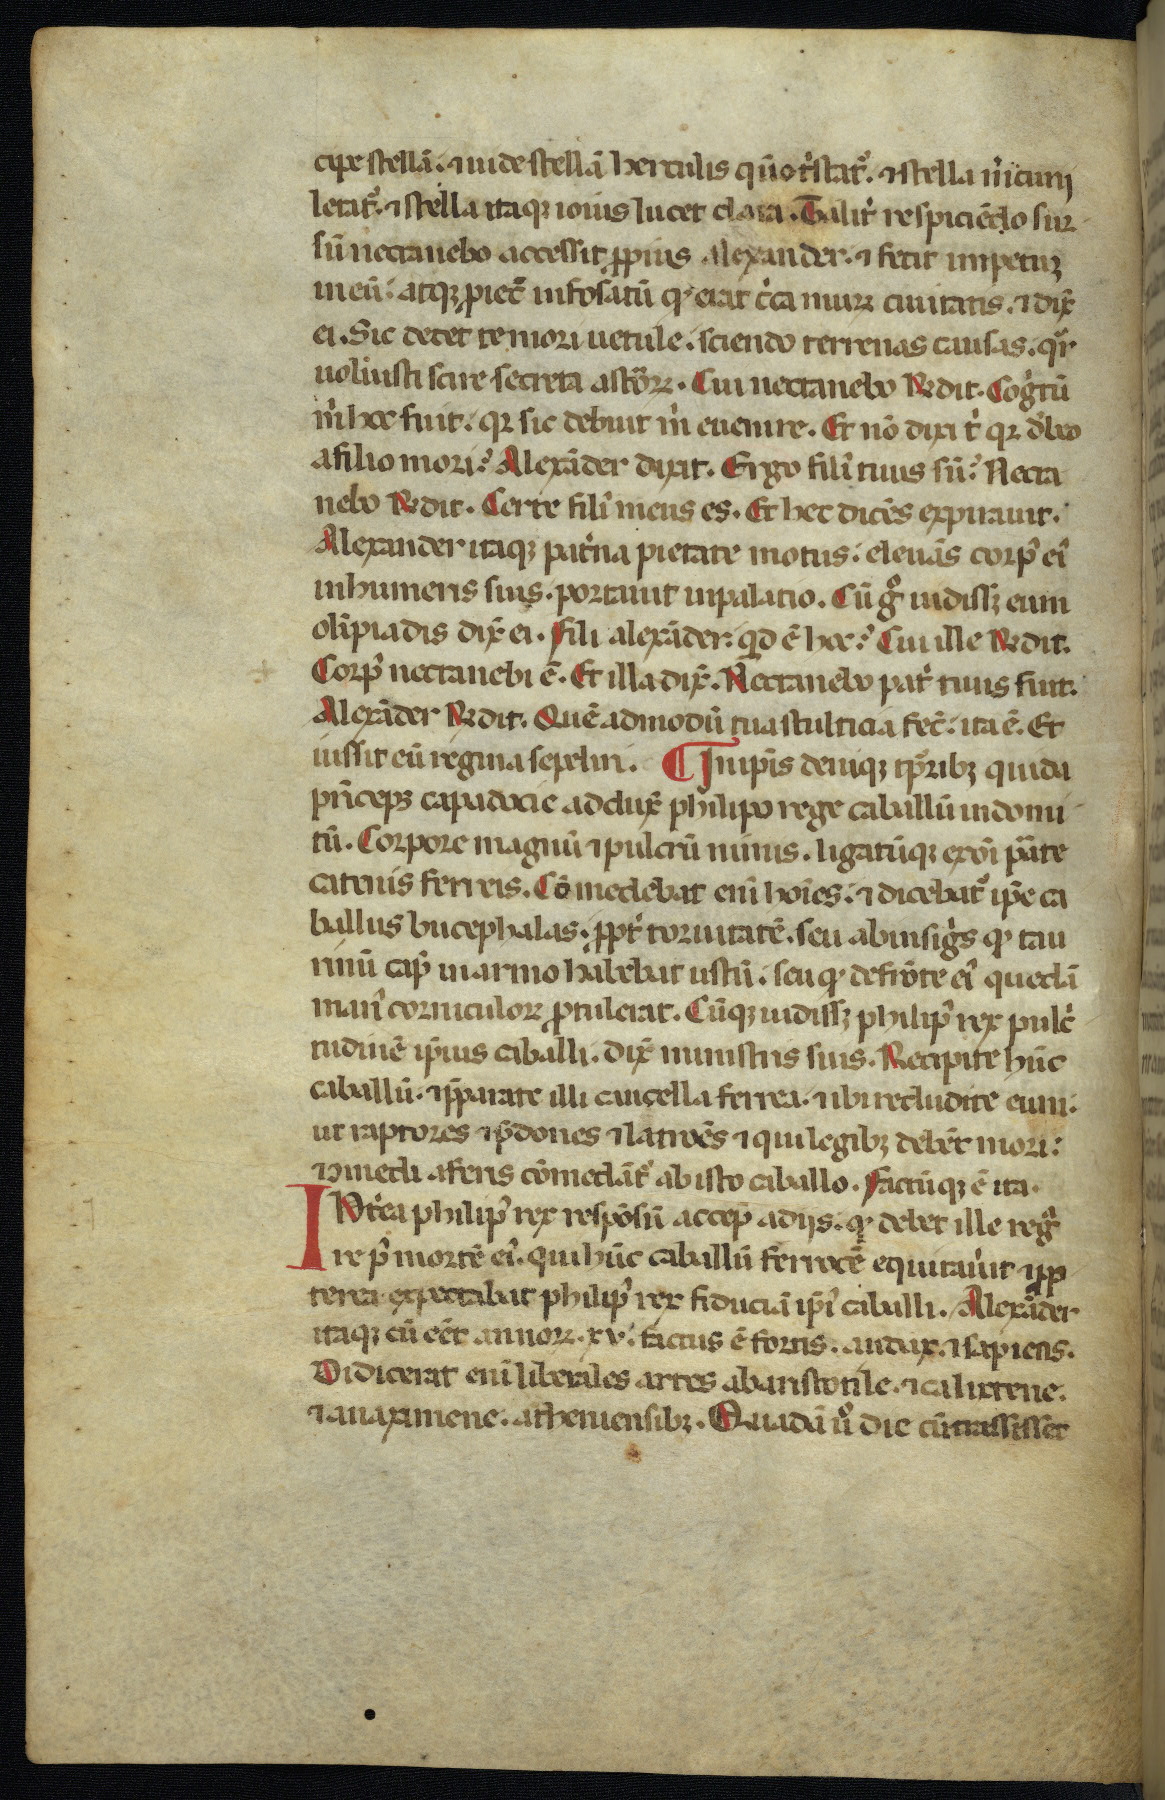 cipe stellā. ⁊ uide stellā herculis qūo t̾stat᷑. ⁊ stella m̾curij
letat᷑. ⁊ stella itaqꝫ iouis lucet clara. Talit̾ respiciēdo sur
sū nectanebo accessit ꝓpius alexander. ⁊ fecit impetuꝫ
in eū. atqꝫ piec̄ in fosatū qͥ erat c̾ca muꝝ ciuitatis. ⁊ dix̄
ei. Sic decet te mori uetule. sciendo terrenas causas. qr̄
uoluisti scire secreta astōꝝ. Cui nectanebo R̄dit. Cog̾tū
m̾ hoc fuit. qꝛ sic debuit m̾ euenire. Et nō dixi t̾ qꝛ d̓beo
a filio mori? Alexāder dixit. Ergo fili᷒ tuus sū? Necta
nebo R̄dit. Certe fili᷒ meus es. Et hec dicēs expirauit.
Alexander itaqꝫ pat̾na pietate motus. eleuās corp᷒ ei᷒
in humeris suis. portauit in palatio. Cū g̊ uidissꝫ eum
olīpiadis dix̄ ei. Fili alexāder. qd ē hoc? Cui ille R̄dit.
Corp᷒ nectanebi ē. Et illa dix̄. Nectanebo pat̾ tuus fuit.
Alexāder R̄dit. Quē admodū tua stulticia fec̄. ita ē. Et
iussit eū regina sepeliri. ¶ Inip̄is deniqꝫ tp̄ribꝫ quida
pn̄ceps capadocie adclux̄ philipo rege caballū indomi
tū. Corpore magnū ⁊ pulcrū nimis. ligatūqꝫ ex oī pāte
catenis ferreis. Cōmedebat enī hoīes. ⁊ dicebat᷑ ip̄e ca
ballus bucephalas. ꝓpt̾ toruitatē. seu ab insig̾s qͥ tau
rinū cap᷒ in armo habebat ustū. seu qͥ de frōte ei᷒ quedā
mīa᷒ corniculoꝝ ꝓtulerat. Cūqꝫ uidissꝫ philip᷒ rex pulc̾
tudinē ip̄ius caballi. dix̄ ministris suis. Recipite hūc
caballū. ⁊ p̄parate illi cancella ferrea. ⁊ ibi recludite eum.
ut raptores ⁊ p̄dones ⁊ latrōes ⁊ qui legibꝫ debēt mori.
⁊ medi a feris cōmedāt᷑ ab isto caballo. Factūqꝫ ē ita.
INt̾ea philip᷒ rex respōsū accep̄ a dijs. qͥ debet ille reg̾
re p᷒ mortē ei᷒. qui hūc caballū ferrocē equitau̾it ⁊ ꝓp
terea expectabat philip᷒ rex fiduciā ip̄i᷒ caballi. Alexāder
itaqꝫ cū eēt annoꝝ. xv. factus ē fortis. audax. ⁊ sapiens.
Didicerat enī liberales artes ab aristotile. ⁊ calixtene.
⁊ anaximene. atheniensibꝫ. Quadā u̾o die cū trāssisset